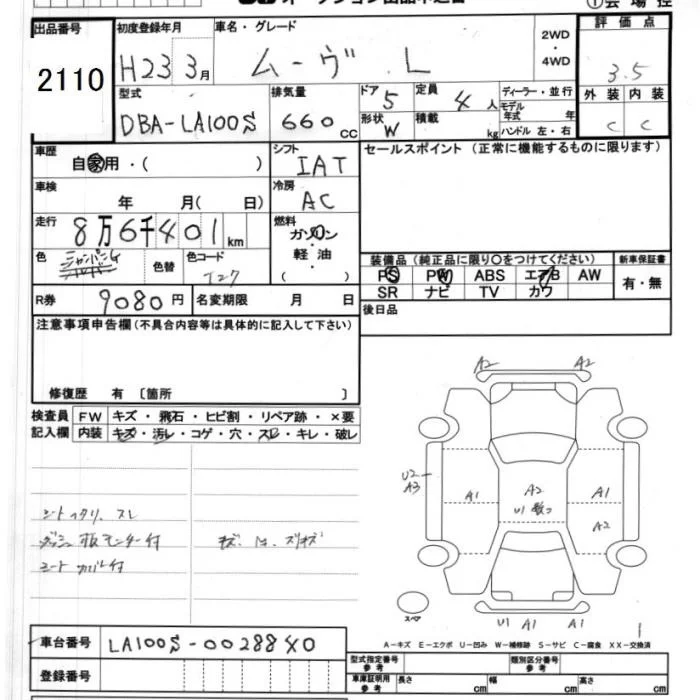 出品番号 2110
初度登録年月 H23 3月
車名・グレード ムーヴ L
2WD・4WD
評価点 3.5
外装 C 内装 C
型式 DBA-LA100S
排気量 660 cc
ドア 5
形状 W
定員 4 人
積載 kg
ディーラー・並行
モデル年式 年
ハンドル 左・右
車歴 自家用・( )
シフト IAT
セールスポイント (正常に機能するものに限ります)
車検 年 月( 日)
冷房 AC
走行 8万6千401km
燃料 ガソリン・軽油・( )
色 シャンパンG
色替
色コード T27
装備品 (純正品に限り○をつけてください)
新車保証書
PS PW ABS エアB AW
有・無
SR ナビ TV カワ
R券 9080円
名変期限 月 日
後日品
注意事項申告欄(不具合内容等は具体的に記入して下さい)
修復歴 有 〔箇所 〕
検査員記入欄
FW キズ・飛石・ヒビ割・リペア跡・×要
内装 キズ・汚レ・コゲ・穴・スレ・キレ・破レ
A2 A2
U2
A3
A1
A2
A1
A2
シートヘタリ、スレ
シートカバー付
スペア
U1 A1 A1
A-キズ E-エクボ U-凹み W-補修跡 S-サビ C-腐食 XX-交換済
車台番号 LA100S-0028840
登録番号
型式指定番号 参考
類別区分番号 参考
車庫証明用 参考 長さ cm 幅 cm 高さ cm